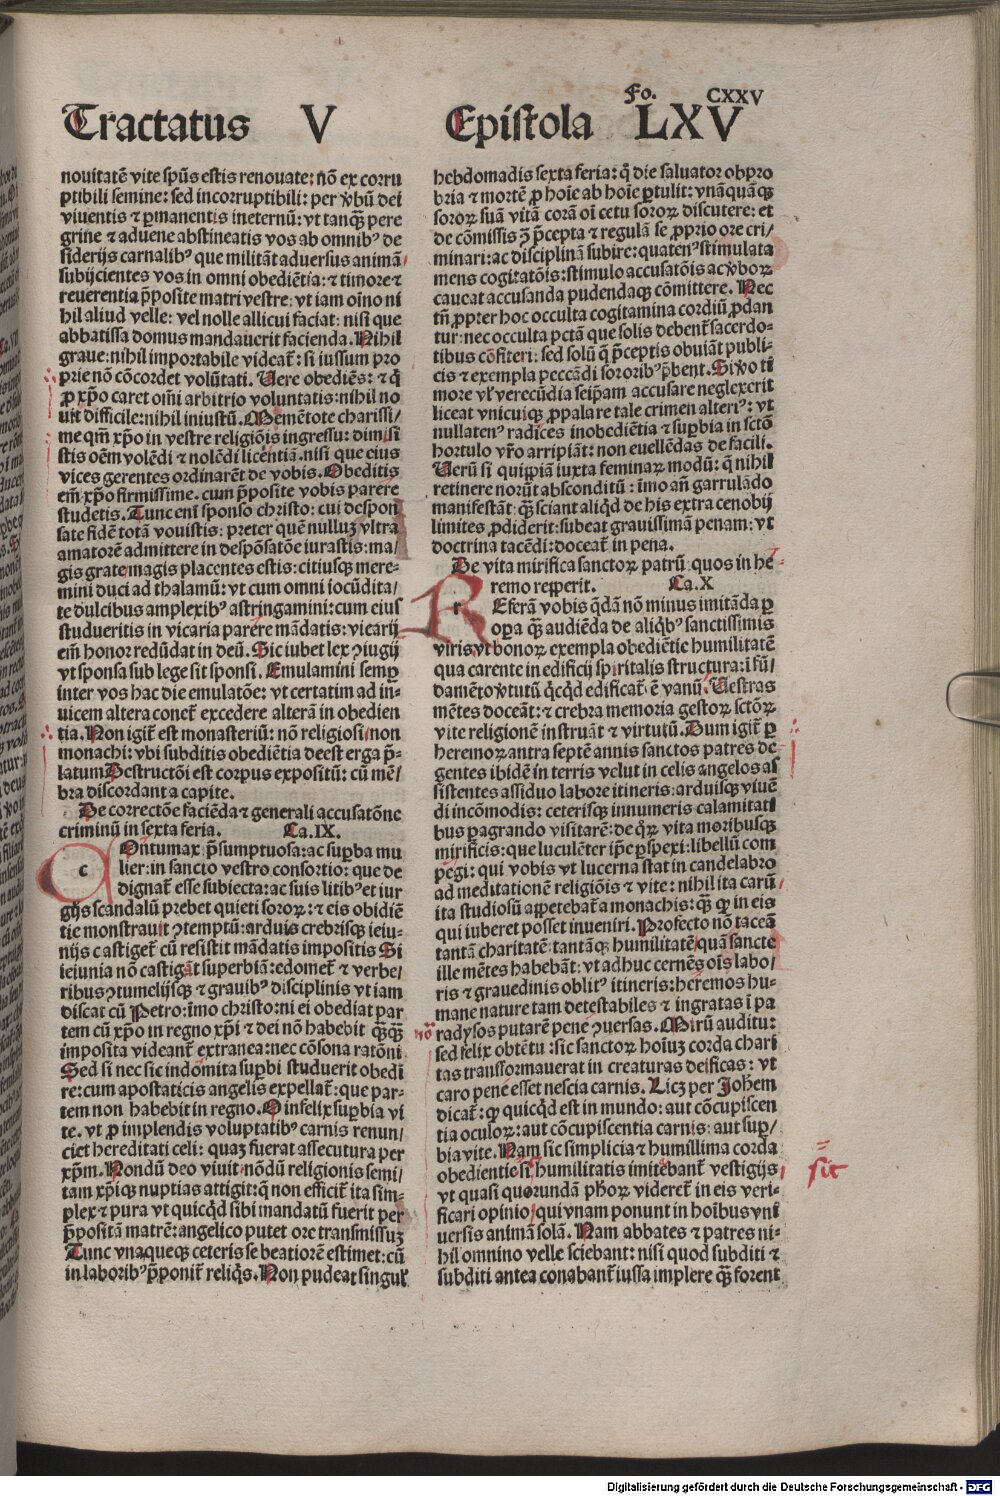 Fo. CXXV
Tractatus V Epistola LXV
nouitatē vite spūs estis renouate: nō ex corru
ptibili semine: sed incorruptibili: per v̓bū dei
viuentis ⁊ ꝑmanentis ineternū: vt tanqꝫ pere
grine ⁊ aduene abstineatis vos ab omnibꝰ de
siderijs carnalibꝰ que militāt aduersus animā
subijcientes vos in omni obediētia: ⁊ timore ⁊
reuerentia p̄posite matri vestre: vt iam oīno ni
hil aliud velle: vel nolle allicui faciat: nisi que
abbatissa domus mandauerit facienda. Nihil
graue: nihil importabile videat̄: si iussum pro
prie nō cōcordet volūtati. Uere obediēs: ⁊ q̄
ꝓ xp̄o caret om̄i arbitrio voluntatis: nihil no
uit difficile: nihil iniustū. Mementote charissi/
me qm̄ xp̄o in vestre religiōis ingressu: dimisi
stis oēm volēdi ⁊ nolēdi licentiā. nisi que eius
vices gerentes ordinarēt de vobis. Obeditis
em̄ xp̄o firmissime. cum p̄posite vobis parere
studetis. Tunc enī sponso christo: cui despon
sate fidē totā vouistis: preter quē nulluꝫ vltra
amatorē admittere in despōsatōe iurastis: ma/
gis grate magis placentes estis: citiusqꝫ mere-
mini duci ad thalamū: vt cum omni iocūdita/
te dulcibus amplexibꝰ astringamini: cum eius
studueritis in vicaria parere mādatis: vicarij
em̄ honor redūdat in deū. Sic iubet lex ꝯiugij
vt sponsa sub lege sit sponsi. Emulamini semꝑ
inter vos hac die emulatōe: vt certatim ad in-
uicem altera conet̄ excedere alterā in obedien
tia. Non igit̄ est monasteriū: nō religiosi non
monachi: vbi subditis obediētia deest erga p̄-
latum Destructōi est corpus expositū: cū mē/
bra discordant a capite.
De correctōe faciēda ⁊ generali accusatōne
criminū in sexta feria. Ca. IX.
COntumax p̄sumptuosa: ac suꝑba mu
lier: in sancto vestro consortio: que de
dignat̄ esse subiecta: ac suis litibꝰ et iur
gijs scandalū prebet quieti sororꝫ: ⁊ eis obidiē
tie monstrauit ꝯtemptū: arduis crebrisqꝫ ieiu-
nijs castiget̄ cū resistit mādatis impositis Si
ieiunia nō castigāt superbiā: edomet̄ ⁊ verbe/
ribus ꝯtumelijsqꝫ ⁊ grauibꝰ disciplinis vt iam
discat cū Petro: īmo christo: ni ei obediat par
tem cū xp̄o in regno xp̄i ⁊ dei nō habebit qꝫqꝫ
imposita videant̄ extranea: nec cōsona ratōni
Sed si nec sic indomita suꝑbi studuerit obedi
re: cum apostaticis angelis expellat̄: que par-
tem non habebit in regno. O infelix suꝑbia vi
te. vt ꝓ implendis voluptatibꝰ carnis renun/
ciet hereditati celi: quaꝫ fuerat assecutura per
xp̄m. Nondū deo viuit: nōdū religionis semi/
tam xp̄iqꝫ nuptias attigit: q̄ non efficit̄ ita sim-
plex ⁊ pura vt quicq̄d sibi mandatū fuerit per
p̄positā matrē: angelico putet ore transmissuꝫ
Tunc vnaqueqꝫ ceteris se beatiorē estimet: cū
in laboribꝰ p̄ponit̄ reliq̄s. Non pudeat singul̓
hebdomadis sexta feria: q̄ die saluator obpro
bria ⁊ mortē ꝓ hoīe ab hoīe ꝑtulit: vnāquāqꝫ
sororꝫ suā vitā corā oī cetu sororꝫ discutere: et
de cōmissis ꝯ̄ p̄cepta ⁊ regulā se ꝓprio ore cri/
minari: ac disciplinā subire: quatenꝰ stimulata
mens cogitatōis: stimulo accusatōis ac v̓borꝫ
caueat accusanda pudendaqꝫ cōmittere. Nec
tn̄ ꝓpter hoc occulta cogitamina cordiū ꝓdan
tur: nec occulta pctā que solis debent̄ sacerdo-
tibus cōfiteri: sed solū q̄ p̄ceptis obuiāt publi-
cis ⁊ exempla peccādi sororibꝰ p̄bent. Si v̓o ti
more vl̓ verecūdia seip̄am accusare neglexerit
liceat vnicuiqꝫ ꝓpalare tale crimen alteriꝰ: vt
nullatenꝰ radices inobediētia ⁊ suꝑbia in sctō
hortulo vr̄o arripiāt: non euellēdas de facili.
Uerū si quip̄iā iuxta feminarꝫ modū: q̄ nihil
retinere norūt absconditū: īmo añ garrulādo
manifestāt: qꝫ sciant aliq̄d de his extra cenobij
limites ꝓdiderit: subeat grauissimā penam: vt
doctrina tacēdi: doceat̄ in pena.
De vita mirifica sanctorꝫ patrū: quos in he
remo reꝑperit. Ca. X
REferā vobis q̄dā nō minus imitāda ꝑ
oꝑa qꝫ audiēda de aliq̄bꝰ sanctissimis
viris vt bonorꝫ exempla obediētie humilitatē
qua carente in edificij spiritalis structura: ī fū/
damēto v̓tutū q̄cq̄d edificat̄ ē vanū. Uestras
mētes doceāt: ⁊ crebra memoria gestorꝫ sctōrꝫ
vite religionē instruāt ⁊ virtutū. Dum igit̄ ꝑ
heremorꝫ antra septē annis sanctos patres de
gentes ibidē in terris velut in celis angelos as
sistentes assiduo labore itineris: arduisqꝫ viuē
di incōmodis: ceterisqꝫ innumeris calamitati
bus ꝑagrando visitarē: de q̄rꝫ vita moribusqꝫ
mirificis: que luculēter ip̄e ꝑspexi: libellū com
pegi: qui vobis vt lucerna stat in candelabro
ad meditationē religiōis ⁊ vite: nihil ita carū/
ita studiosū appetebat̄ a monachis: qꝫ ꝙ in eis
qui iuberet posset inueniri. Profecto nō taceā
tantā charitatē: tantāqꝫ humilitatē quā sancte
ille mētes habebāt: vt adhuc cernēs oīs labo/
ris ⁊ grauedinis oblitꝰ itineris: heremos hu-
mane nature tam detestabiles ⁊ ingratas ī pa
radysos putarē pene ꝯuersas. Mirū auditu:
sed felix obtētu: sic sanctorꝫ hoīuꝫ corda chari
tas transformauerat in creaturas deificas: vt
caro pene esset nescia carnis. Licꝫ per Johēm
dicat̄: ꝙ quicq̄d est in mundo: aut cōcupiscen
tia oculorꝫ: aut cōcupiscentia carnis: aut suꝑ/
bia vite. Nam sic simplicia ⁊ humillima corda
obedientie sit̓ humilitatis imitebant̄ vestigijs
vt quasi quorundā ph̄orꝫ videret̄ in eis veri-
ficari opinio qui vnam ponunt in hoībus vni
uersis animā solā. Nam abbates ⁊ patres ni-
hil omnino velle sciebant: nisi quod subditi ⁊
subditi antea conabant̄ iussa implere qꝫ forent
sit
Digitalisierung gefördert durch die Deutsche Forschungsgemeinschaft - DFG